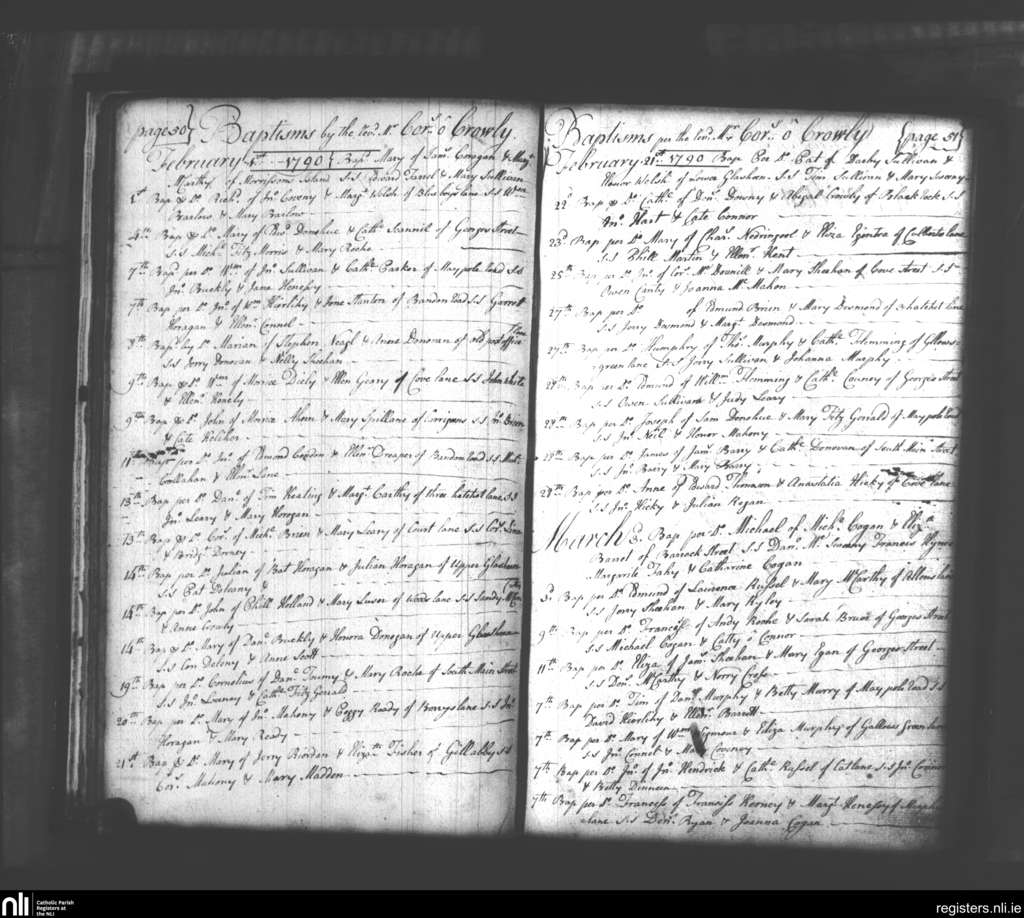 page 50} Baptisms by the Revd. Mr. Cors. O Crowly
February 1st 1790 } Bapt. Mary of Jams. Corogan & Margt.
Carthy of Morrissons Island S.s Edward Farrel & Mary Sullivan
Bap & Dr. Richd. of Jno. Coveny & Margt. Welsh of Blue boys lane S.s Wm.
Barlow & Mary Barlow
4th Bap & Dr. Mary of Donohue & Cathe. Scannil of Georges Street
S.s Michl. Fitz Morris & Mary Roche
7th Bap per Dr. Wm. of Jno. Sullivan & Cathe. Parker of Maypole road S.s
Jno. Buckly & Jane Henessy
7th Bap per Dr. Jno. of Wm. Hierlihy & Jane Stanton of Brandon road S.s Garret
Horagan & Ellenr. Connel
8th Bap. by Dr. Marian of Stephen Neagl & Donovan of old post office
lane
S.s Jerry Donovan & Nelly Sheehan
9th Bap & Dr. Wm. of Morice Diely & Ellen Geary of Cove lane S.s John white
& Ellenr. Henely
9th Bap & Dr. John of Morice Ahern & Mary Spillane of Corrigans S.s Jno. Brien
& Cate Keleher
11th Bap per Dr. Jno. of Edmond Cogdon & Ellenr. Draper of Bandon road S.s
Callahan & Ellenr. Lane
13th Bap per Dr. Danl. of Tim Keating & Margt. Carthy of three hatchet lane S.s
Jno. Leary & Mary Horogan
13th Bap & Dr. Cors. of Michl. Brien & Mary Leary of Court lane S.s Cors. Lane
& Bridgt. Dorney
14th Bap per Dr. Julian of Bat Horagan & Julian Horagan of Upper Glasheen
S.s Pat Delaney &
14th Bap per Dr. John of Phill Holland & Mary Luser of Woods lane S.s Sandy
& Anne Crowly
14th Bap & Dr. Mary of Danl. Buckly & Honora Donogan of Upper Glasheen
S.s Con Deleny & Anne Scott
19th Bap per Dr. Cornelius of Danl. Tuomy & Mary Roche of South Main Street
S.s Jno. Looney & Cathe. Fitz Gerrald
20th Bap per Dr. Mary of Jno. Mahony & Peggy Ready of Borrys lane S.s Jno.
Horagan & Mary Ready
21st Bap & Dr. Mary of Jerry Riordan & Elizth. Fisher of Gillabby S.s
Cors. Mahony & Mary Madden
Baptisms per the Revd. Mr. Cors. O Crowly {page 51
February 21st 1790 Bap Per Dr. Pat of Darby Sullivan &
Honor Welsh of Lower Glasheen S.s Tim Sullivan & Mary Sweny
22d Bap & Dr. Cathe. of Denis. Downy & Abigal Crowly of Polack lock S.s
Jno. Hart & Cate Connor
23d Bap per Dr. Mary of Chars. & Eliza of lane
S.s Phill Martin & Ellenr. Kent
25th Bap per Dr. Jno. of Cors. & Mary Sheehan of Cove Street S.s
Owen Canty & Joanna Mc Mahon
27th Bap per Dr. of Edmund Brien & Mary Desmond of hatchet lane
S.s Jerry Desmond & Margt. Desmond
27th Bap per Dr. Humphry of Thos. Murphy & Cathe. Flemming of
green lane S.s Jerry Sullivan & Johanna Murphy
28th Bap per Dr. Edmund of Willm. Flemming & Cathe. Coveney of Georges Street
S.s Owen Sullivan & Judy Leary
28th Bap per Dr. Joseph of Sam Donohue & Mary Fitz Gerrald of Maypole road
S.s Jno. Neil & Honor Mahony
28th Bap per Dr. James of Jams. Barry & Cathe. Donovan of South Main Street
S.s Jno. Barry & Mary Barry
28th Bap per Dr. Anne of Edward Thomson & Anastatia Hicky of Cove lane
S.s Jno. Hicky & Julian Regan
March 3d Bap per Dr. Michael of Michl. Cogan & Eliza
Barrel of Barrack Street S.s Danl. Francis Hynes
Margaret Fahy & Catharine Cogan
3d Bap per Dr. Edmund of Lawrence Russel & Mary McCarthy of Allens lane
S.s Jerry Sheehan & Mary Ryley
9th Bap per Dr. Franciss of Andy Roche & Sarah Bruce of Georges Street
S.s Michael Cogan & Catty O Connor
11th Bap per Dr. Eliza of Jams. Sheehan & Mary Egan of Georges Street
S.s Denis. McCarthy & Norry
7th Bap per Dr. Tim of Danl. Murphy & Betty Murry of May pole road S.s
David Hierlihy & Ellenr. Barrett
7th Bap per Dr. Mary of Wm. & Eliza Murphy of Gallows Green lane
S.s Jno. Connel & Mary Coveney
7th Bap per Dr. Jno. of Jno. Hendrick & Cathe. Russel of Cat lane S.s Jno. Connor
& Betty Dinneen
7th Bap per Dr. Franciss of Franciss Kerney & Margt. Henessy of
lane S.s Denis. Ryan & Joanna Cogan
nli
Catholic Parish
Registers at
the NLI
registers.nli.ie